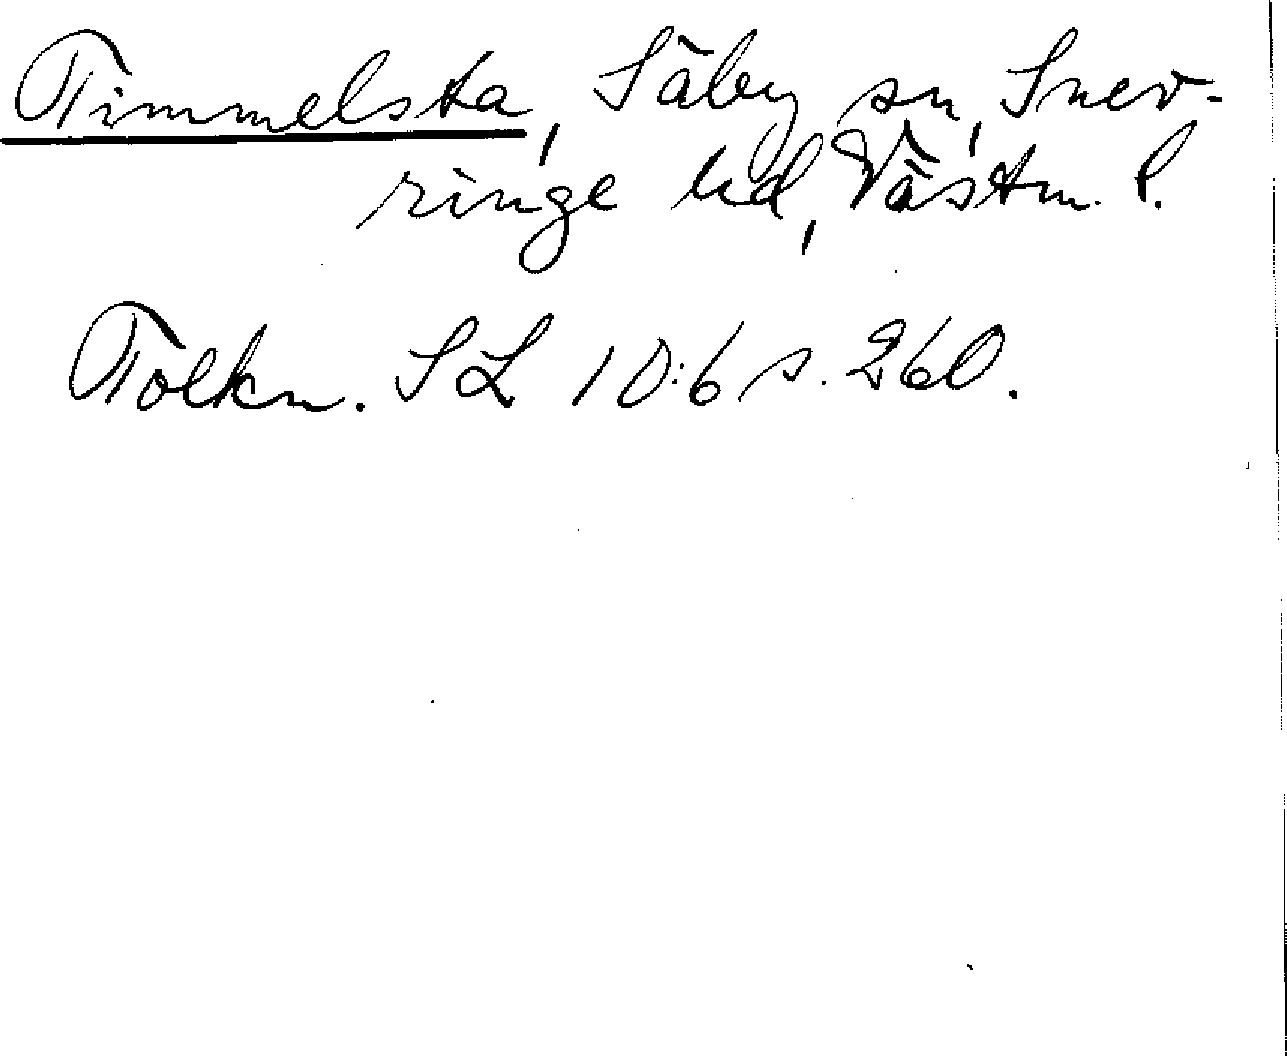 Timmelsta, Säby sn, Snev-
ringe hd, Västm. l.
Tolkn. SL 10:6 s. 260.